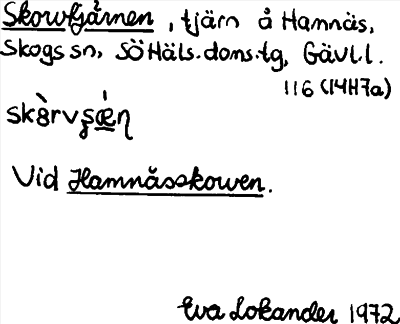 Skowtjärnen, tjärn å Hamnäs,
Skogs sn, SöHäls.doms.tg, Gävl.l.
116 (14H7a)
Vid Hamnåsskowen.
Eva Lokander 1972